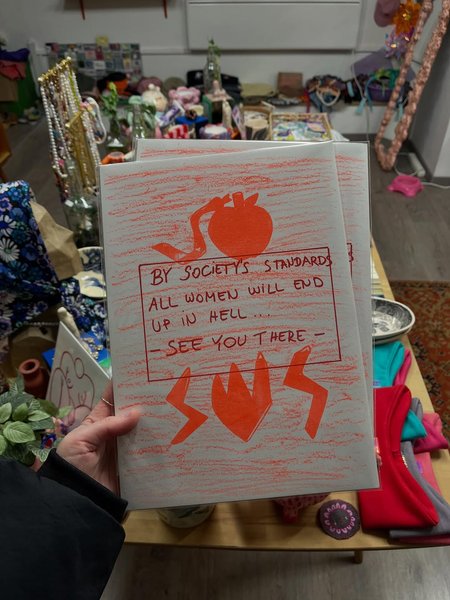 BY SOCIETY'S STANDARDS
ALL WOMEN WILL END
UP IN HELL...
- SEE YOU THERE -